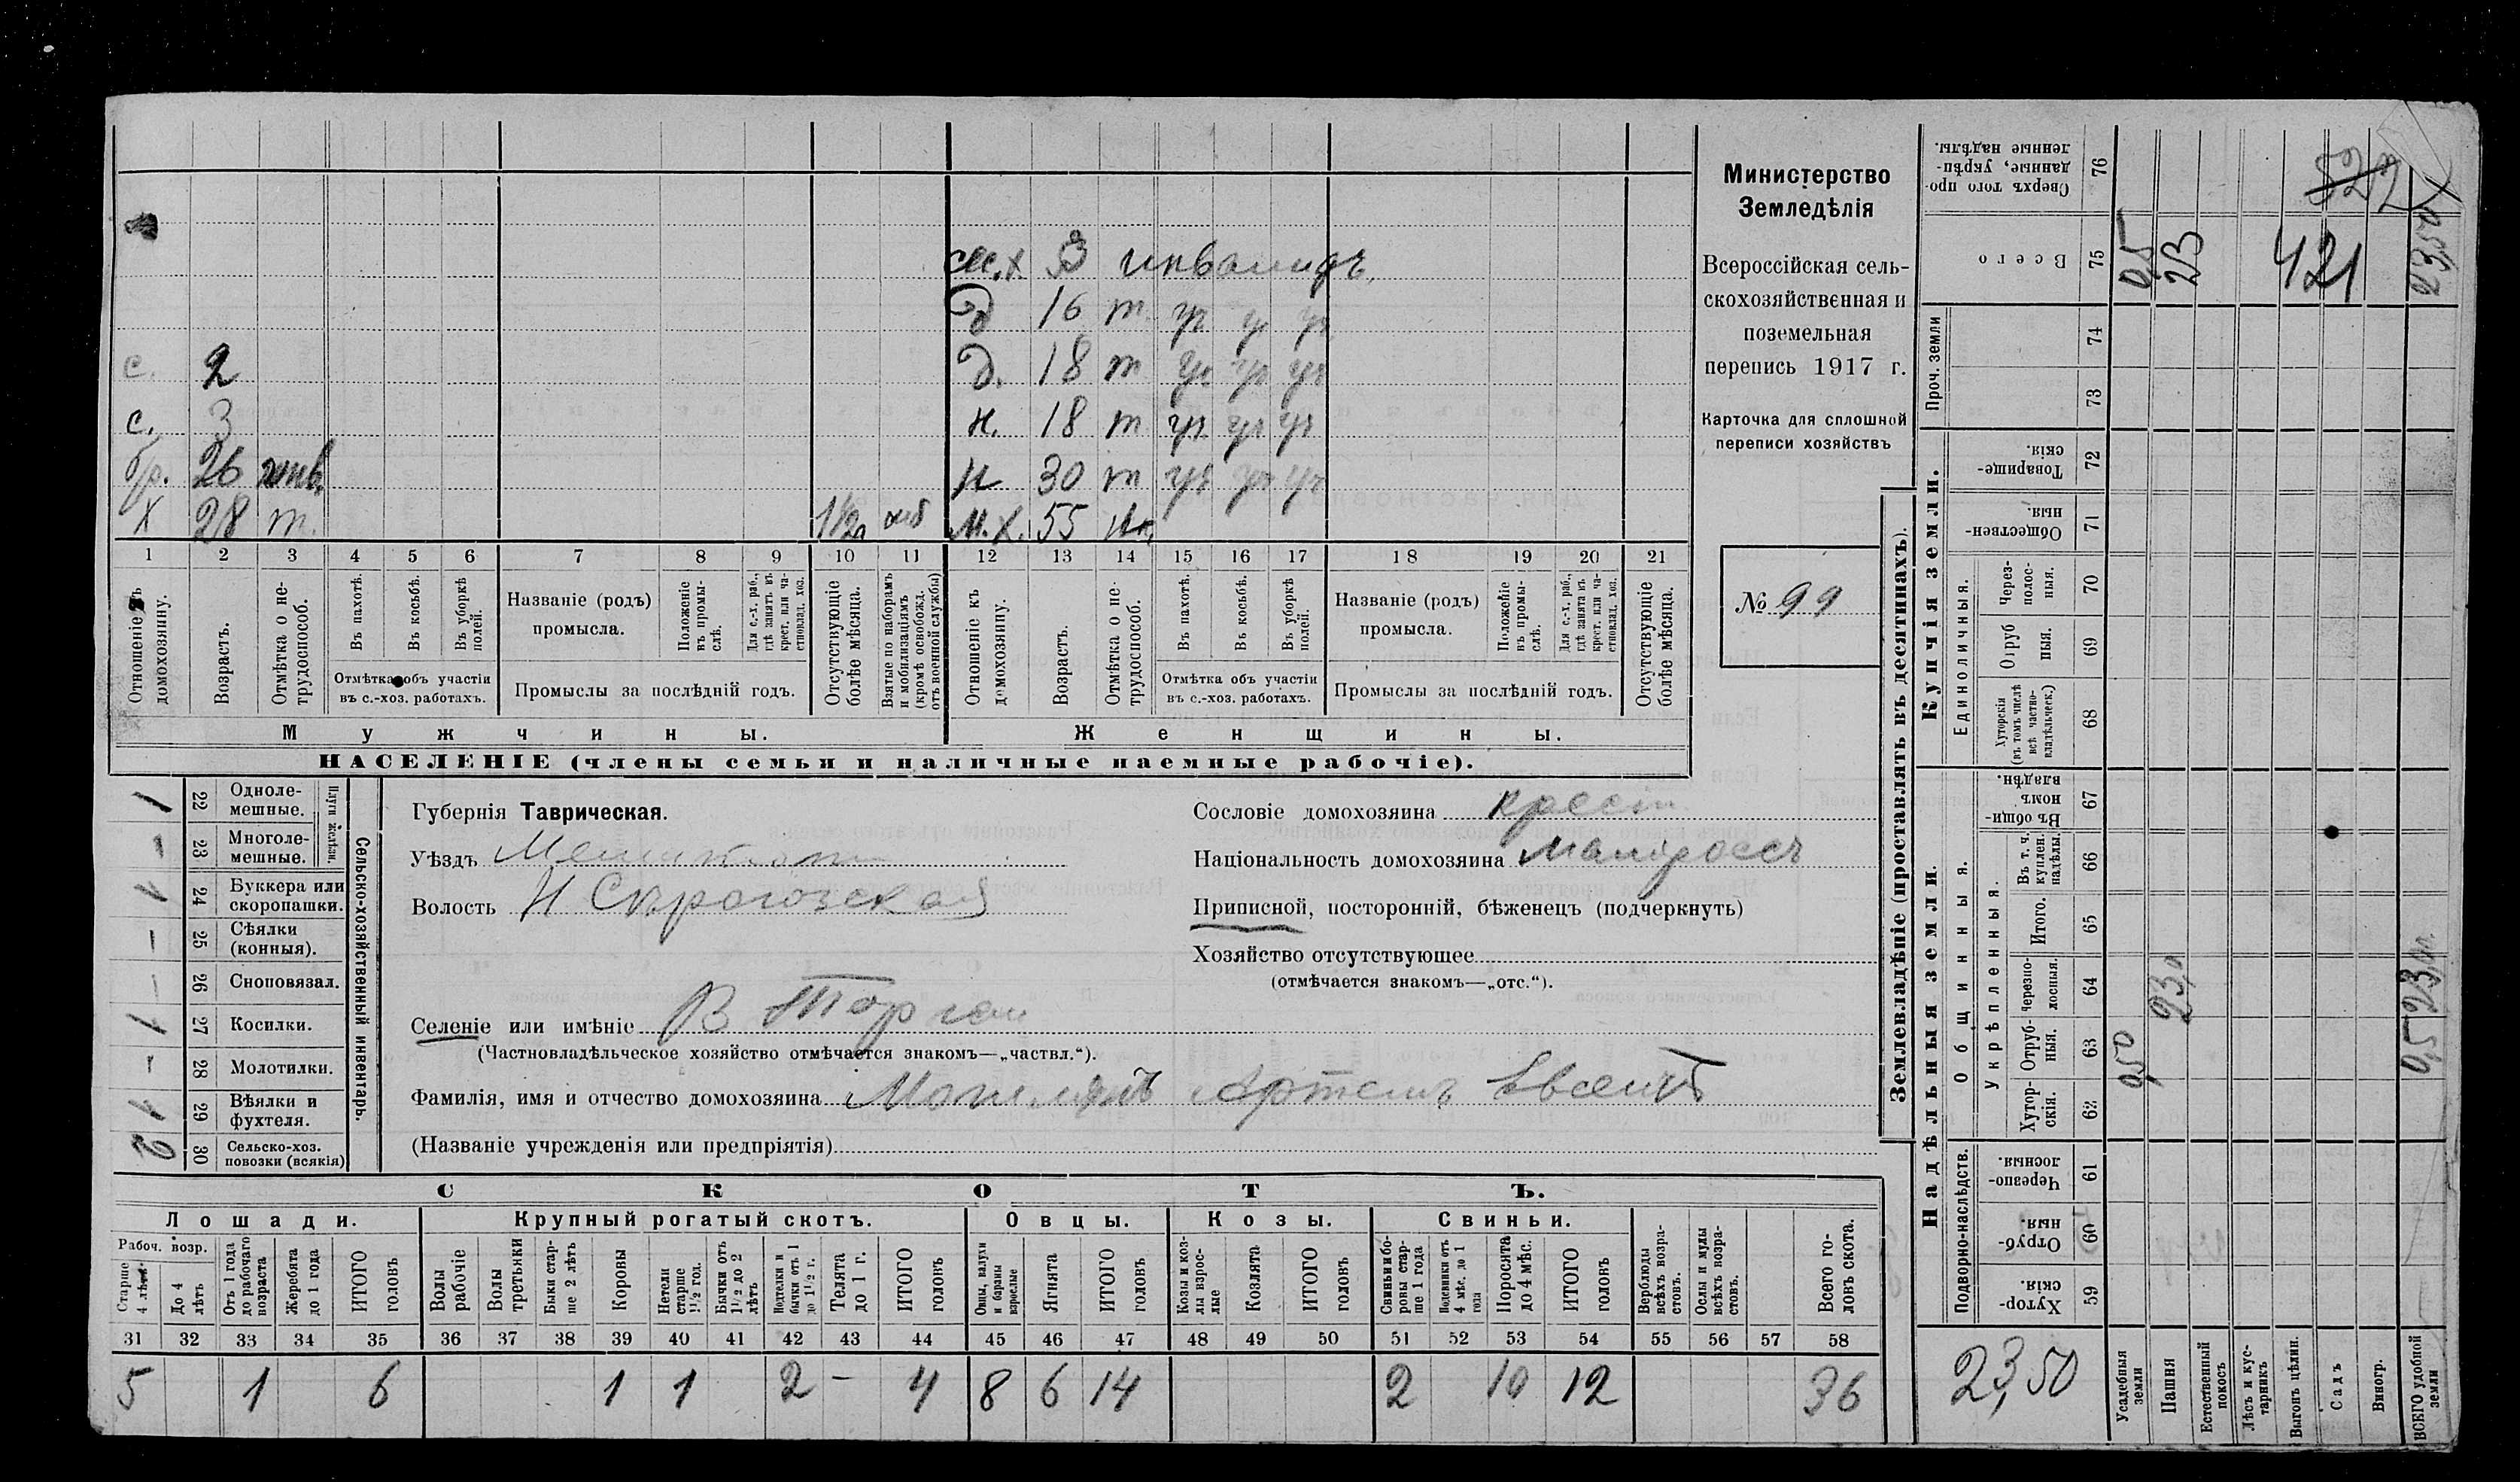 с.х. 3 инвалидъ
д 16 т. уч уч уч
с. 2 д. 18 т уч уч уч
с. 3 н. 18 т уч уч уч
бр. 26 инв. н 30 т уч уч уч
х 28 т. 1 1/2 г м.х. 55
1 2 3 4 5 6 7 8 9 10 11 12 13 14 15 16 17 18 19 20 21
Отношеніе къ домохозяину.
Возрастъ.
Отмѣтка о нетрудоспособ.
Въ пахотѣ.
Въ косьбѣ.
Въ уборкѣ полей.
Отмѣтка объ участіи
въ с.-хоз. работахъ.
Названіе (родъ)
промысла.
Положеніе въ промыслѣ.
Для с.-х. раб., гдѣ занятъ въ крест. или частновлад. хоз.
Промыслы за послѣдній годъ.
Отсутствующіе болѣе мѣсяца.
Взятые по наборамъ и мобилизаціямъ (кромѣ освобожд. отъ военной службы)
Отношеніе къ домохозяину.
Возрастъ.
Отмѣтка о нетрудоспособ.
Въ пахотѣ.
Въ косьбѣ.
Въ уборкѣ полей.
Отмѣтка объ участіи
въ с.-хоз. работахъ.
Названіе (родъ)
промысла.
Положеніе въ промыслѣ.
Для с.-х. раб., гдѣ занята въ крест. или частновлад. хоз.
Промыслы за послѣдній годъ.
Отсутствующіе болѣе мѣсяца.
Мужчины. Женщины.
НАСЕЛЕНІЕ (члены семьи и наличные наемные рабочіе).
Министерство
Земледѣлія
Всероссійская сель-
скохозяйственная и
поземельная
перепись 1917 г.
Карточка для сплошной
переписи хозяйствъ
№ 99
Сельско-хозяйственный инвентарь.
Плуги желѣзн.
22 Однолемешные. 1
23 Многолемешные. -
24 Буккера или скоропашки. 1
25 Сѣялки (конныя). -
26 Сноповязал. -
27 Косилки. 1
28 Молотилки. -
29 Вѣялки и фухтеля. 1
30 Сельско-хоз. повозки (всякія)
Губернія Таврическая.
Уѣздъ Мелитоп
Волость Н Сѣрогозская
Селеніе или имѣніе В Торгаи
(Частновладѣльческое хозяйство отмѣчается знакомъ—„частвл.“).
Фамилія, имя и отчество домохозяина Артемъ Евсеичъ
(Названіе учрежденія или предпріятія)
Сословіе домохозяина крест.
Національность домохозяина малороссъ
Приписной, посторонній, бѣженецъ (подчеркнуть)
Хозяйство отсутствующее
(отмѣчается знакомъ—„отс.“).
СКОТЪ.
Лошади. Крупный рогатый скотъ. Овцы. Козы. Свиньи.
Рабоч. возр.
Старше 4 лѣтъ
До 4 лѣтъ
Отъ 1 года до рабочаго возраста
Жеребята до 1 года
ИТОГО головъ
Волы рабочіе
Волы третьяки
Быки старше 2 лѣтъ
Коровы
Нетели старше 1½ год.
Бычки отъ 1½ до 2 лѣтъ
Подтелки и бычки отъ 1 до 1½ г.
Телята до 1 г.
ИТОГО головъ
Овцы, валухи и бараны взрослые
Ягнята
ИТОГО головъ
Козы и козлы взрослые
Козлята
ИТОГО головъ
Свиньи и боровы старше 1 года
Подсвинки отъ 4 мѣс. до 1 года
Поросята до 4 мѣс.
ИТОГО головъ
Верблюды всѣхъ возрастовъ.
Ослы и мулы всѣхъ возрастовъ.
Всего головъ скота.
31 32 33 34 35 36 37 38 39 40 41 42 43 44 45 46 47 48 49 50 51 52 53 54 55 56 57 58
5 1 6 1 1 2 - 4 8 6 14 2 10 12 36
Землевладѣніе (проставлять въ десятинахъ).
Купчія земли.
Надѣльныя земли.
Сверхъ того проданные, укрѣпленные надѣлы. 76
Всего 75 0,5 23 23,50
522
421
Проч. земли 74 73
Товарищескія. 72
Общественныя. 71
Единоличныя.
Черезполосныя. 70
Отрубныя. 69
Хуторскія (въ томъ числѣ всѣ частновладѣльческ.) 68
Общинныя.
Въ общинномъ владѣн. 67
Укрѣпленныя.
Въ т. ч. куплен. надѣлы. 66
Итого. 65
Черезполосныя. 64 23,0
Отрубныя. 63 0,50
Хуторскія. 62
Подворно-наслѣдств.
Черезполосныя. 61
Отрубныя. 60
Хуторскія. 59
23,50
Усадебныя земли
Пашня
Естественный покосъ
Лѣсъ и кустарникъ
Выгонъ цѣлин.
Садъ
Виногр.
ВСЕГО удобной земли